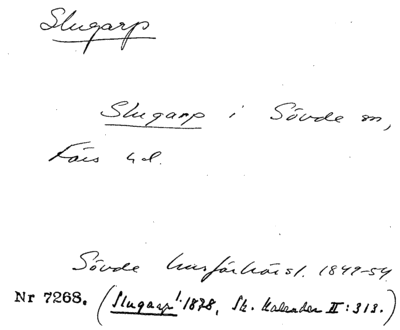 Slugarp
Slugarp i Sövde sn,
Färs hd.
Sövde husförhörsl. 1849-54
Nr 7268. (Slugarp 1: 1878, Sk. Kalender II: 313.)